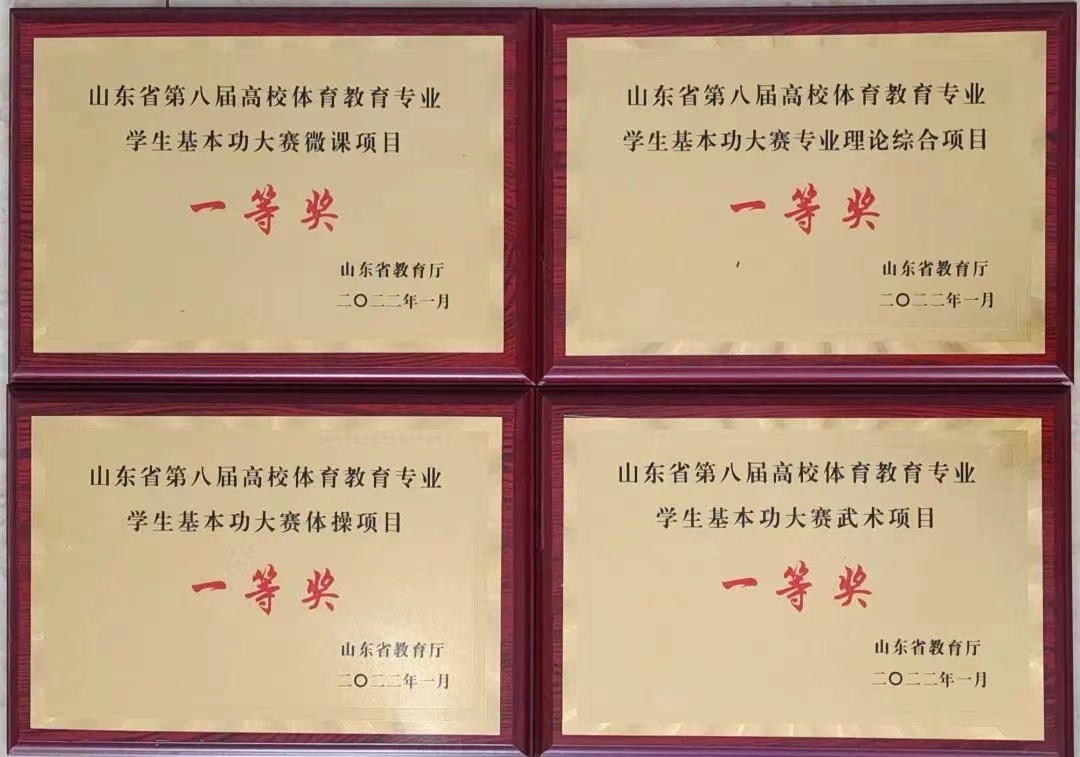 山东省第八届高校体育教育专业
学生基本功大赛微课项目
一等奖
山东省教育厅
二〇二二年一月
山东省第八届高校体育教育专业
学生基本功大赛专业理论综合项目
一等奖
山东省教育厅
二〇二二年一月
山东省第八届高校体育教育专业
学生基本功大赛体操项目
一等奖
山东省教育厅
二〇二二年一月
山东省第八届高校体育教育专业
学生基本功大赛武术项目
一等奖
山东省教育厅
二〇二二年一月